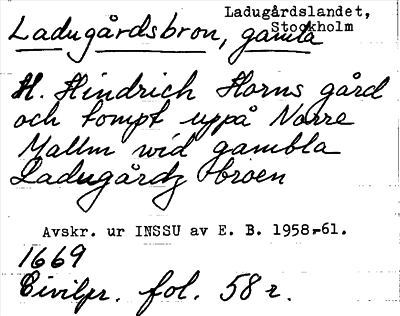 Ladugårdslandet,
Stockholm
Ladugårdsbron, gamla
H. Hindrich Horns gård
och tompt uppå Norre
Mallm wid gambla
Ladugårdz broen
Avskr. ur INSSU av E. B. 1958-61.
1669
Civilpr. fol. 58 r.